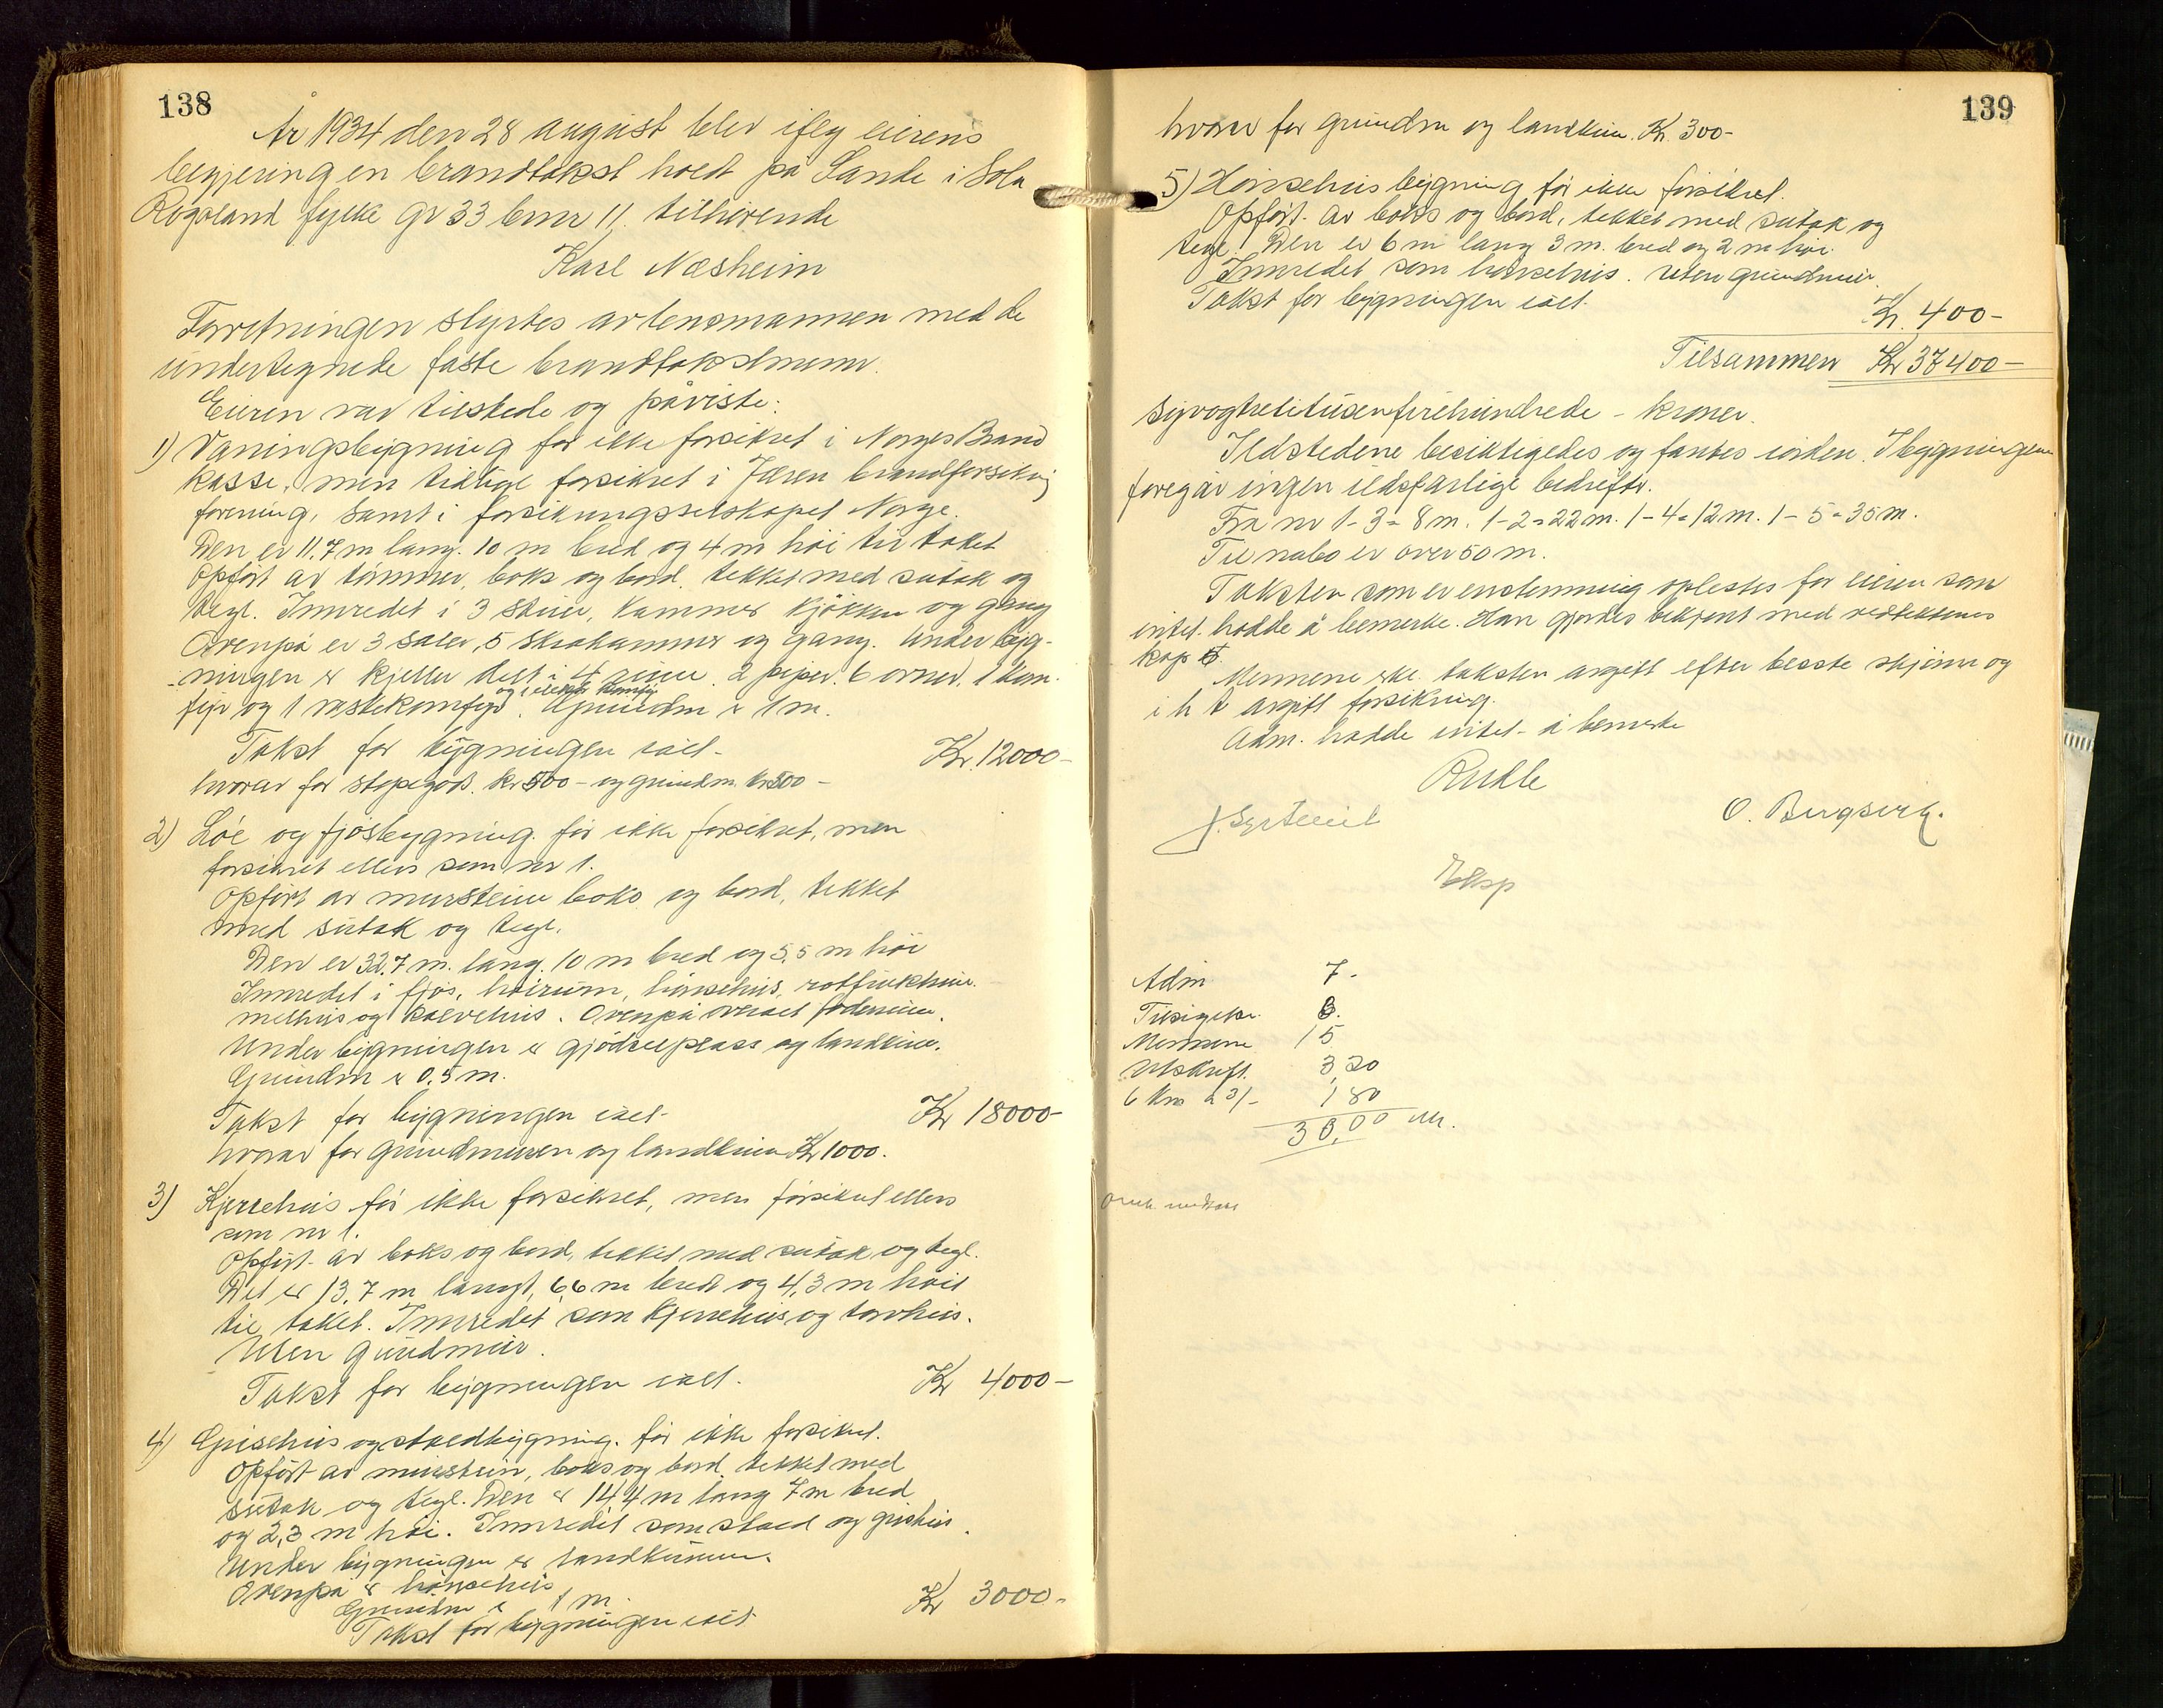 138
År 1934 den 28 august blev iflg eierens
begjering en brandtakst holdt på Sande i Sola
Rogaland fylke gr 33 bnr 11. tilhørende
Karl Næsheim
Forretningen styrtes av lensmannen med de
undertegnede faste brandtakstmenn.
Eieren var tilstede og påviste:
1) Vaningsbygning før ikke forsikret i Norges Brand
kasse, men tidlige forsikret i Jæren brandforsekrig
forening, samt i forsikringsselskapet Norge.
Den er 11,7 m lang. 10 m bred og 4 m høi til taket
Opført av tømmer, boks og bord, tekket med sutak og
tegl. Innredet i 3 stuer, kammer kjøkken og gang
Ovenpå er 3 saler, 5 skrakammer og gang. Under byg-
ningen er kjeller delt i 4 rum. 2 piper. 6 ovner. 1 kom-
fyr og 1 vaskekomfyr og 1 elektr komfyr. Grundm er 1 m.
Takst for bygningen ialt - Kr. 12000-
hvorav for støpegods. kr 500 - og grundm. kr 500 -
2) Løe og fjøsbygning. før ikke forsikret, men
forsikret ellers som nr 1.
Opført av murstein boks og bord, tekket
med sutak og tegl.
Den er 32,7 m. lang. 10 m bred og 5,5 m høi
Innredet i fjøs, høirum, hønsehus, rotfruktrum.
melhus og kalvehus. Ovenpå overalt foderrum.
Under bygningen er gjødselplass og landkum.
Grundm er 0,5 m.
Takst for bygningen ialt - Kr 18000-
hvorav for grundmuren og landkum Kr 1000.
3) Kjerrehus før ikke forsikret, men forsikret ellers
som nr 1.
Opført av boks og bord, tekket med sutak og tegl.
Det er 13,7 m langt, 6,6 m bredt og 4,3 m høit
til taket. Innredet som kjerrehus og torvhus.
Uten grundmur.
Takst for bygningen ialt. Kr 4000-
4) Grisehus og staldbygning. før ikke forsikret.
Opført av murstein, boks og bord. tekket med
sutak og tegl. Den er 14,4 m lang 7 m bred
og 2,3 m høi. Innredet som stald og grishus.
Under bygningen er landkummer.
Ovenpå er hønsehus
Grundm er 1 m.
Takst for bygningen ialt Kr 3000-
139
hvorav for grundm og landkum. Kr. 300-
5) Hønsehusbygning før ikke forsikret.
Opført av boks og bord, tekket med sutak og
tegl. Den er 6 m lang 3 m. bred og 2 m høi.
Innredet som hønsehus. Uten grundmur.
Takst for bygningen ialt.
Kr. 400-
Tilsammen Kr 37400-
syvogtrettitusenfirehundrede - kroner.
Ildstedene besiktigedes og fantes i orden. I bygningen
foregår ingen ildsfarlige bedrifter.
Fra nr 1-3 = 8 m. 1-2 = 22 m. 1-4 = 12 m. 1-5 = 35 m.
Til nabo er over 50 m.
Taksten som er enstemmig oplestes for eieren som
intet hadde å bemerke. Han gjordes bekjent med vedtektenes
kap 5.
Mennene erkl. taksten avgitt efter beste skjønn og
i h t avgitt forsikring.
Adm. hadde intet å bemerke
O. Bergsvig.
Eksp
Adm 7-
Tilsigelse 3.
Mennene 15
Utskrift. 3,20
6 km a 3/- 1 80
30,00